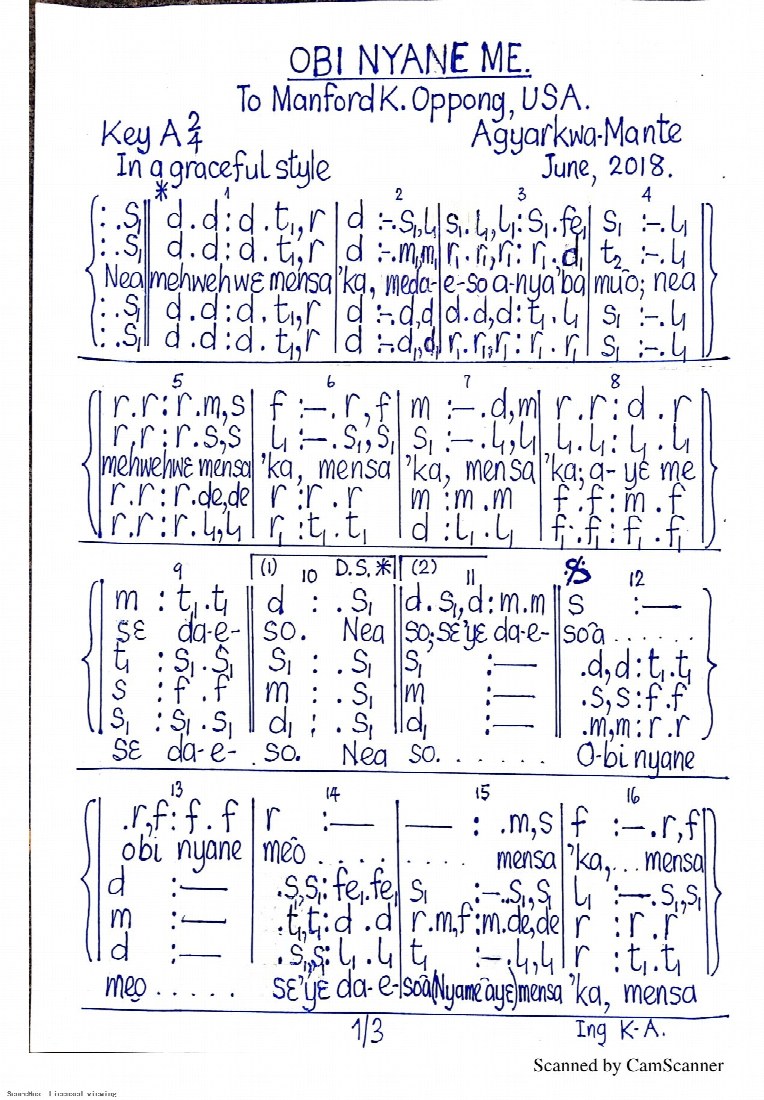 OBI NYANE ME.
To Manford K. Oppong, USA.
Key A 2/4
Agyarkwa-Mante
In a graceful style
June, 2018.
* 1 2 3 4
: .s₁ || d .d : d .t₁,r | d :-.s₁,l₁ | s₁.l₁,l₁ : s₁.fe₁ | s₁ :-.l₁
: .s₁ || d .d : d .t₁,r | d :-.m₁,m₁ | r₁.r₁,r₁ : r₁.d₁ | t₂ :-.l₁
Nea mehwehwɛ mensa 'ka, meda-e-so a-nya'ba muō; nea
: .s₁ || d .d : d .t₁,r | d :-.d,d | d.d,d : t₁.l₁ | s₁ :-.l₁
: .s₁ || d .d : d .t₁,r | d :-.d₁,d₁ | r₁.r₁,r₁ : r₁.r₁ | s₁ :-.l₁
5 6 7 8
r.r : r.m,s | f :-.r,f | m :-.d,m | r.r : d.r
r.r : r.s,s | l₁ :-.s₁,s₁ | s₁ :-.l₁,l₁ | l₁.l₁ : l₁.l₁
mehwehwɛ mensa 'ka, mensa 'ka, mensa 'ka; a-yɛ me
r.r : r.de,de | r : r.r | m : m.m | f.f : m.f
r.r : r.l₁,l₁ | r₁ : t₁.t₁ | d : l₁.l₁ | f₁.f₁ : f₁.f₁
9 (1) 10 D.S.* (2) 11 12
m : t₁.t₁ | d : .s₁ | d.s₁,d : m.m | s :—
sɛ da-e- so. Nea so; sɛ'yɛ da-e- soā ......
t₁ : s₁.s₁ | s₁ : .s₁ | s₁ :— | .d,d : t₁.t₁
s : f.f | m : .s₁ | m :— | .s,s : f.f
s₁ : s₁.s₁ | d₁ : .s₁ | d₁ :— | .m,m : r.r
sɛ da-e- so. Nea so. ...... O-bi nyane
13 14 15 16
.r,f : f.f | r :— | — : .m,s | f :-.r,f
obi nyane meō .... .... mensa 'ka,... mensa
d :— | .s₁,s₁ : fe₁.fe₁ | s₁ :-.s₁,s₁ | l₁ :-.s₁,s₁
m :— | .t₁,t₁ : d.d | r.m,f : m.de,de | r : r.r
d :— | .s₁,s₁ : l₁.l₁ | t₁ :-.l₁,l₁ | r : t₁.t₁
meo ..... sɛ'yɛ da-e- soā (Nyame āyɛ) mensa 'ka, mensa
1/3
Ing K-A.
Scanned by CamScanner